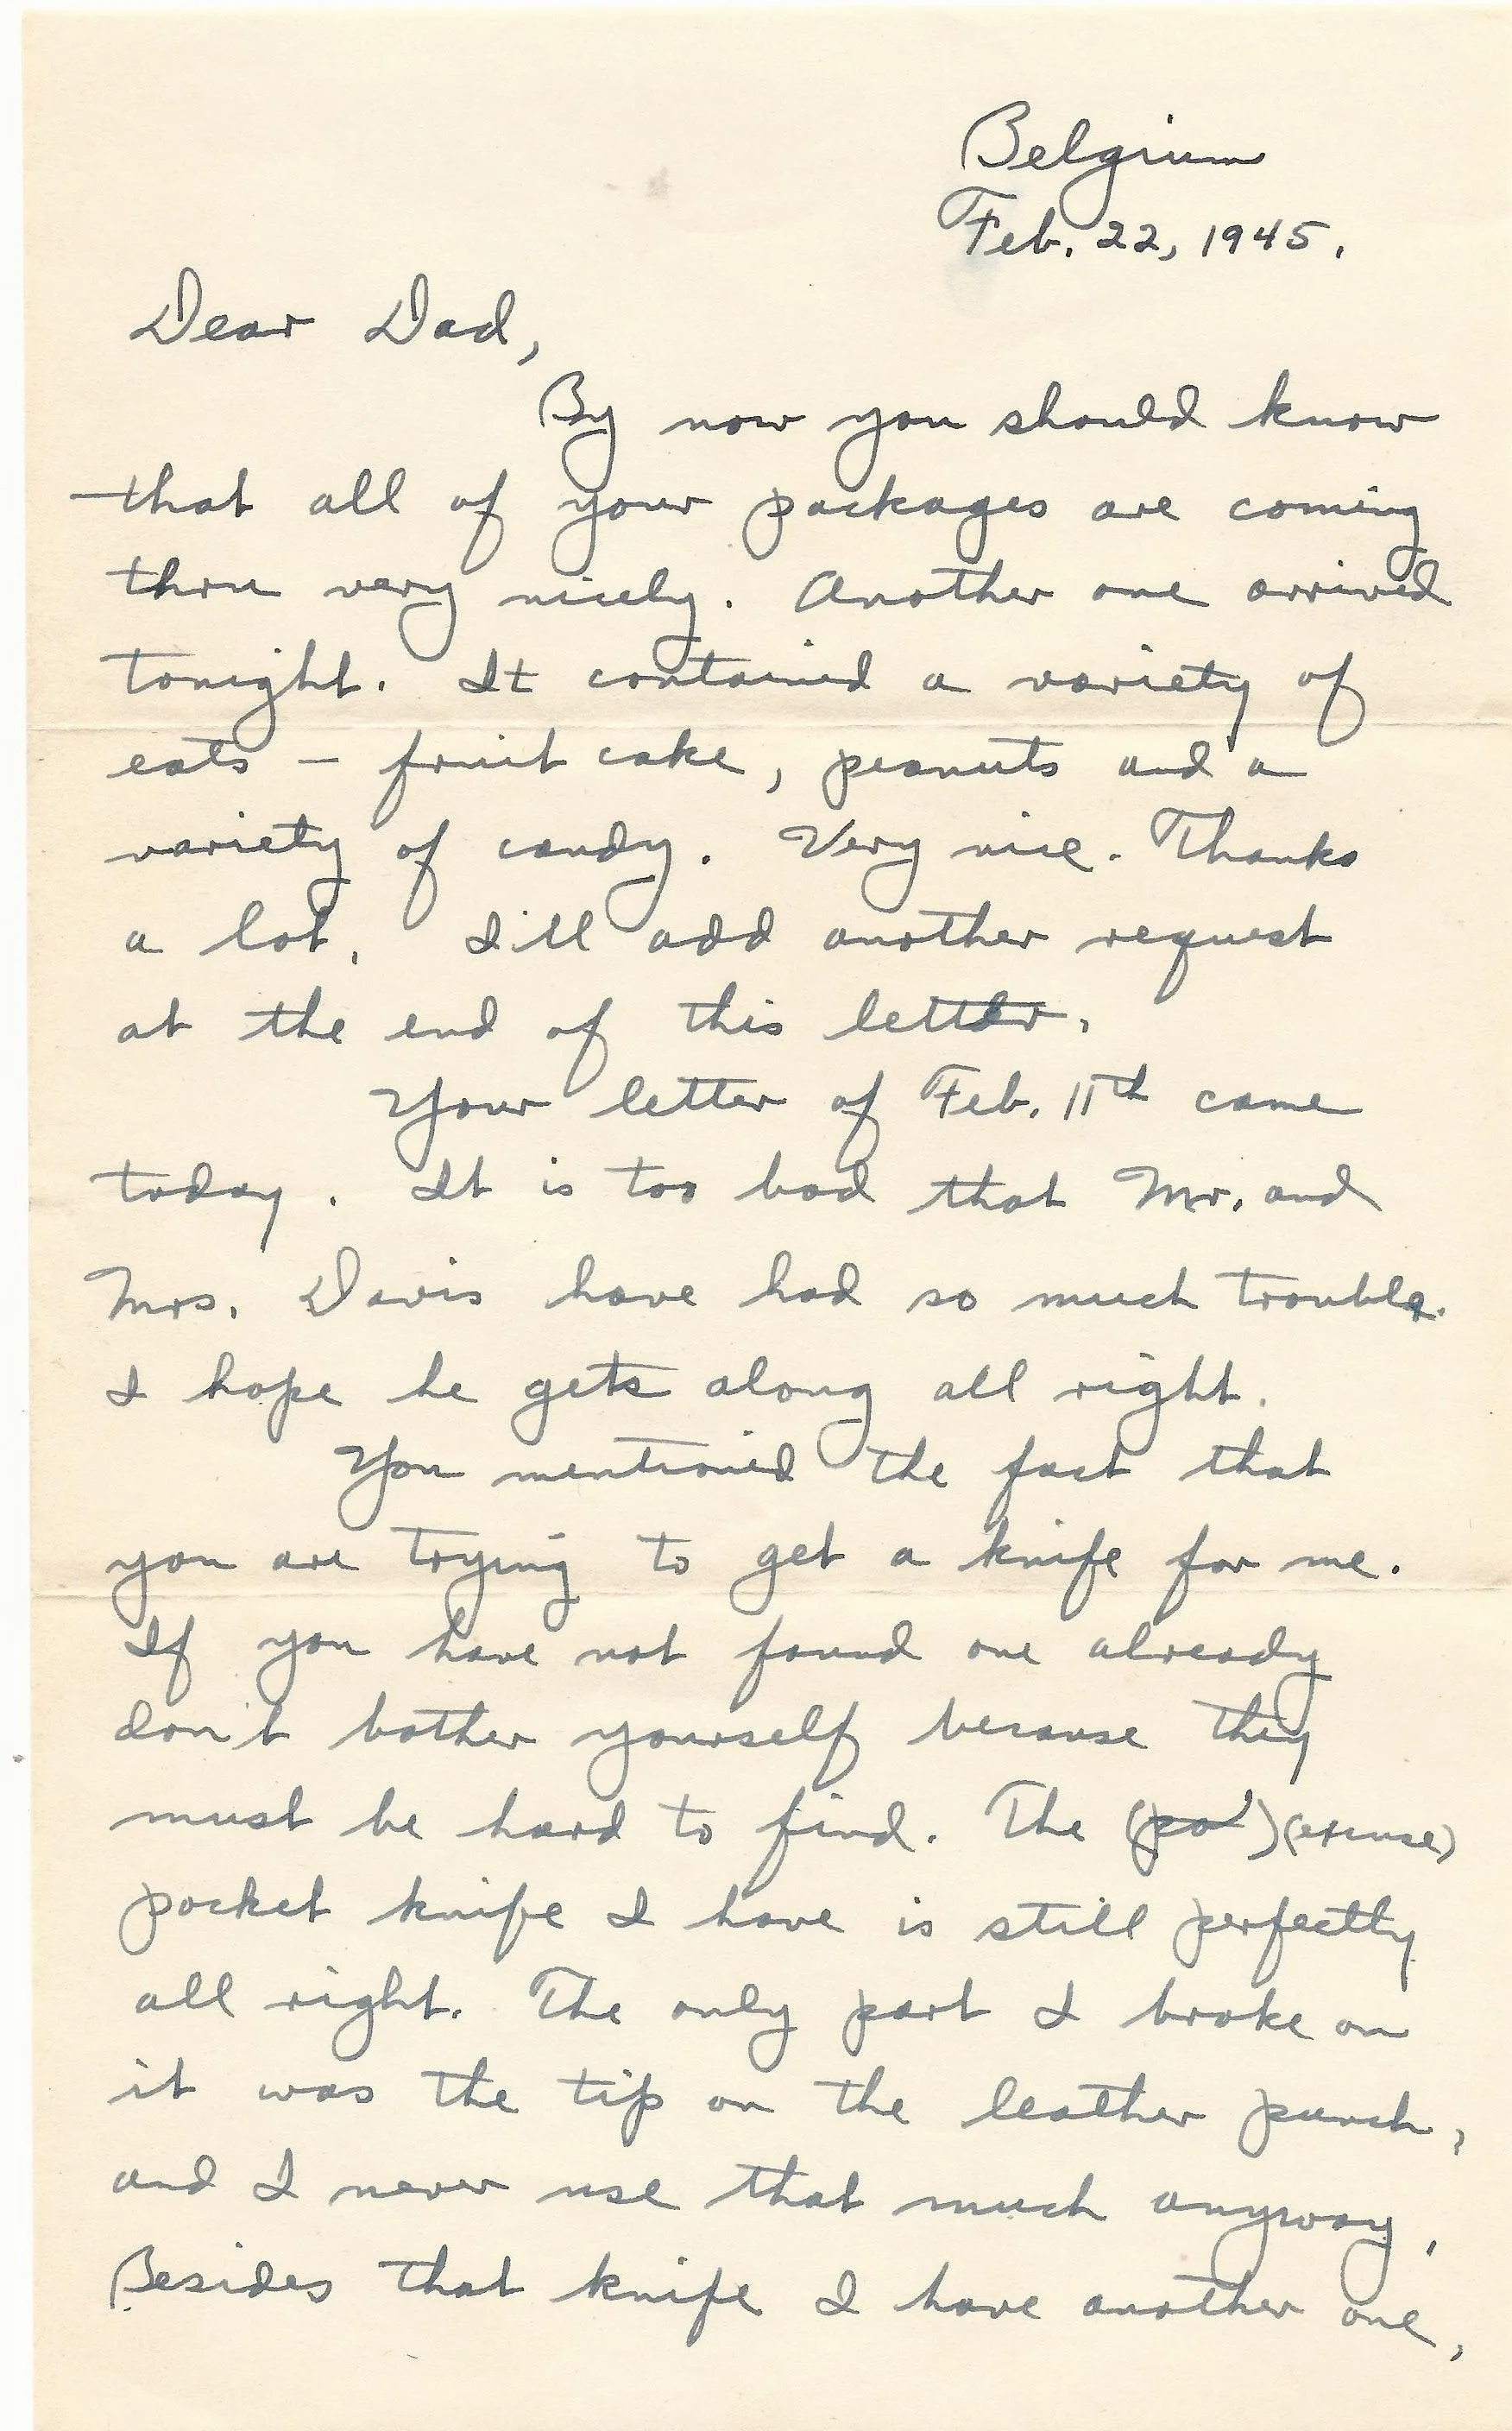 Belgium
Feb. 22, 1945.
Dear Dad,
By now you should know
that all of your packages are coming
thru very nicely. Another one arrived
tonight. It contained a variety of
eats – fruit cake, peanuts and a
variety of candy. Very nice. Thanks
a lot. I'll add another request
at the end of this letter.
Your letter of Feb. 11th came
today. It is too bad that Mr. and
Mrs. Davis have had so much trouble.
I hope he gets along all right.
You mentioned the fact that
you are trying to get a knife for me.
If you have not found one already
don't bother yourself because they
must be hard to find. The (po) (excuse)
pocket knife I have is still perfectly
all right. The only part I broke on
it was the tip on the leather punch,
and I never use that much anyway.
Besides that knife I have another one,